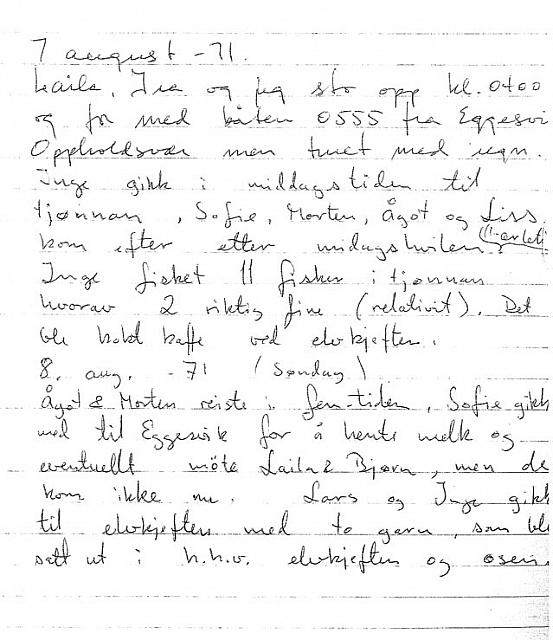 7 august -71.
Laila, Ina og jeg sto opp kl. 0400
og for med båten 0555 fra Eggesvi
Oppholdsvær men truet med regn.
Inge gikk i middagstiden til
tjønnan, Sofie, Morten, Ågot og Liss
kom efter etter midagshvilen.
Inge fisket 11 fisker i tjønnan
hvorav 2 riktig fine (relativit). Det
ble kokt kaffe ved elvkjeften.
8. aug. -71 (Søndag)
Ågot & Morten reiste i fem-tiden, Sofie gikk
med til Eggesvik for å hente melk og
eventuellt möte Laila & Bjørn, men de
kom ikke nu. Lars og Inge gikk
til elvkjeften med to garn, som ble
satt ut i h.h.v. elvkjeften og osen.